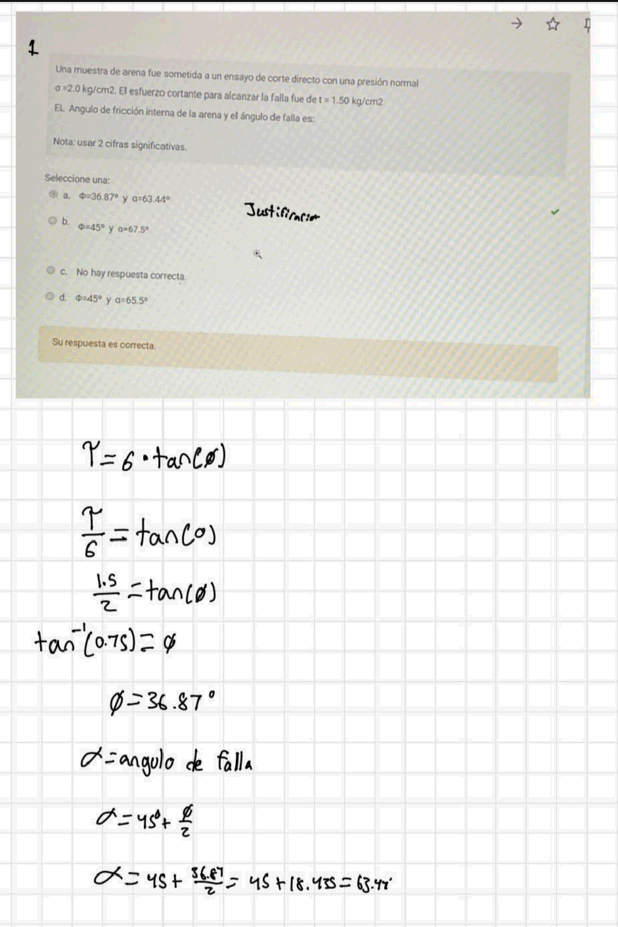 1
Una muestra de arena fue sometida a un ensayo de corte directo con una presión normal
σ =2.0 kg/cm2. El esfuerzo cortante para alcanzar la falla fue de t = 1.50 kg/cm2
EL Angulo de fricción interna de la arena y el ángulo de falla es:
Nota: usar 2 cifras significativas.
Seleccione una:
a. Φ=36.87° y α=63.44°
Justificacion
b. Φ=45° y α=67.5°
c. No hay respuesta correcta.
d. Φ=45° y α=65.5°
Su respuesta es correcta.
τ = σ · tan(ø)
τ/σ = tan(ø)
1.5/2 = tan(ø)
tan⁻¹(0.75) = ø
ø = 36.87°
α = angulo de falla
α = 45° + ø/2
α = 45 + 36.87/2 = 45 + 18.435 = 63.44°